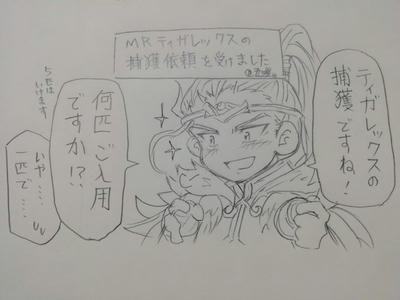 MRティガレックスの
捕獲依頼を受けました
ティガレックスの
捕獲ですね！
何匹ご入用
ですか!?
5匹は
いけます
いや……
一匹で……